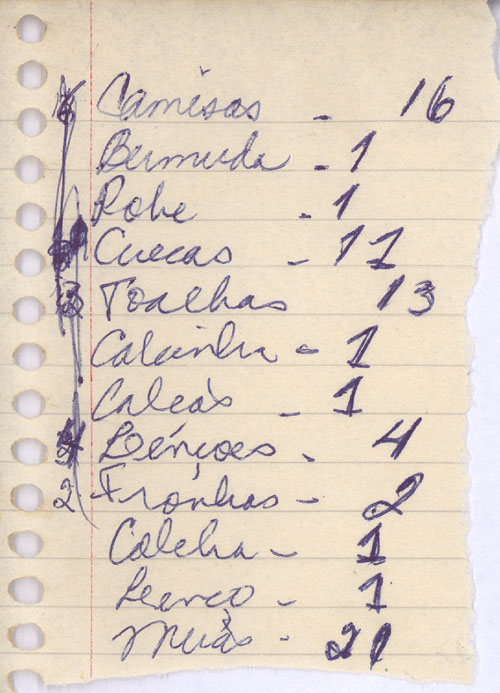 Camisas - 16
Bermuda - 1
Robe - 1
Cuecas - 11
Toalhas 13
Calcinha - 1
Calças - 1
4 Lençoes - 4
2 Fronhas - 2
Colcha - 1
Lenço - 1
Meias - 21